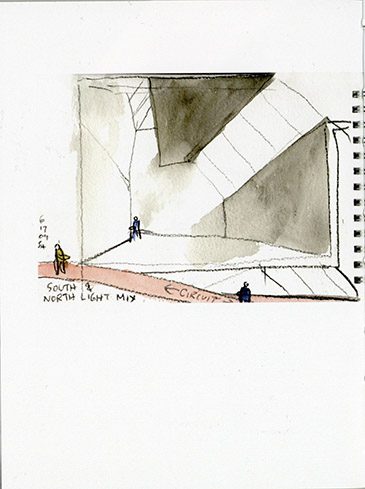 6
17
04
SOUTH &
NORTH LIGHT MIX
← CIRCUIT →